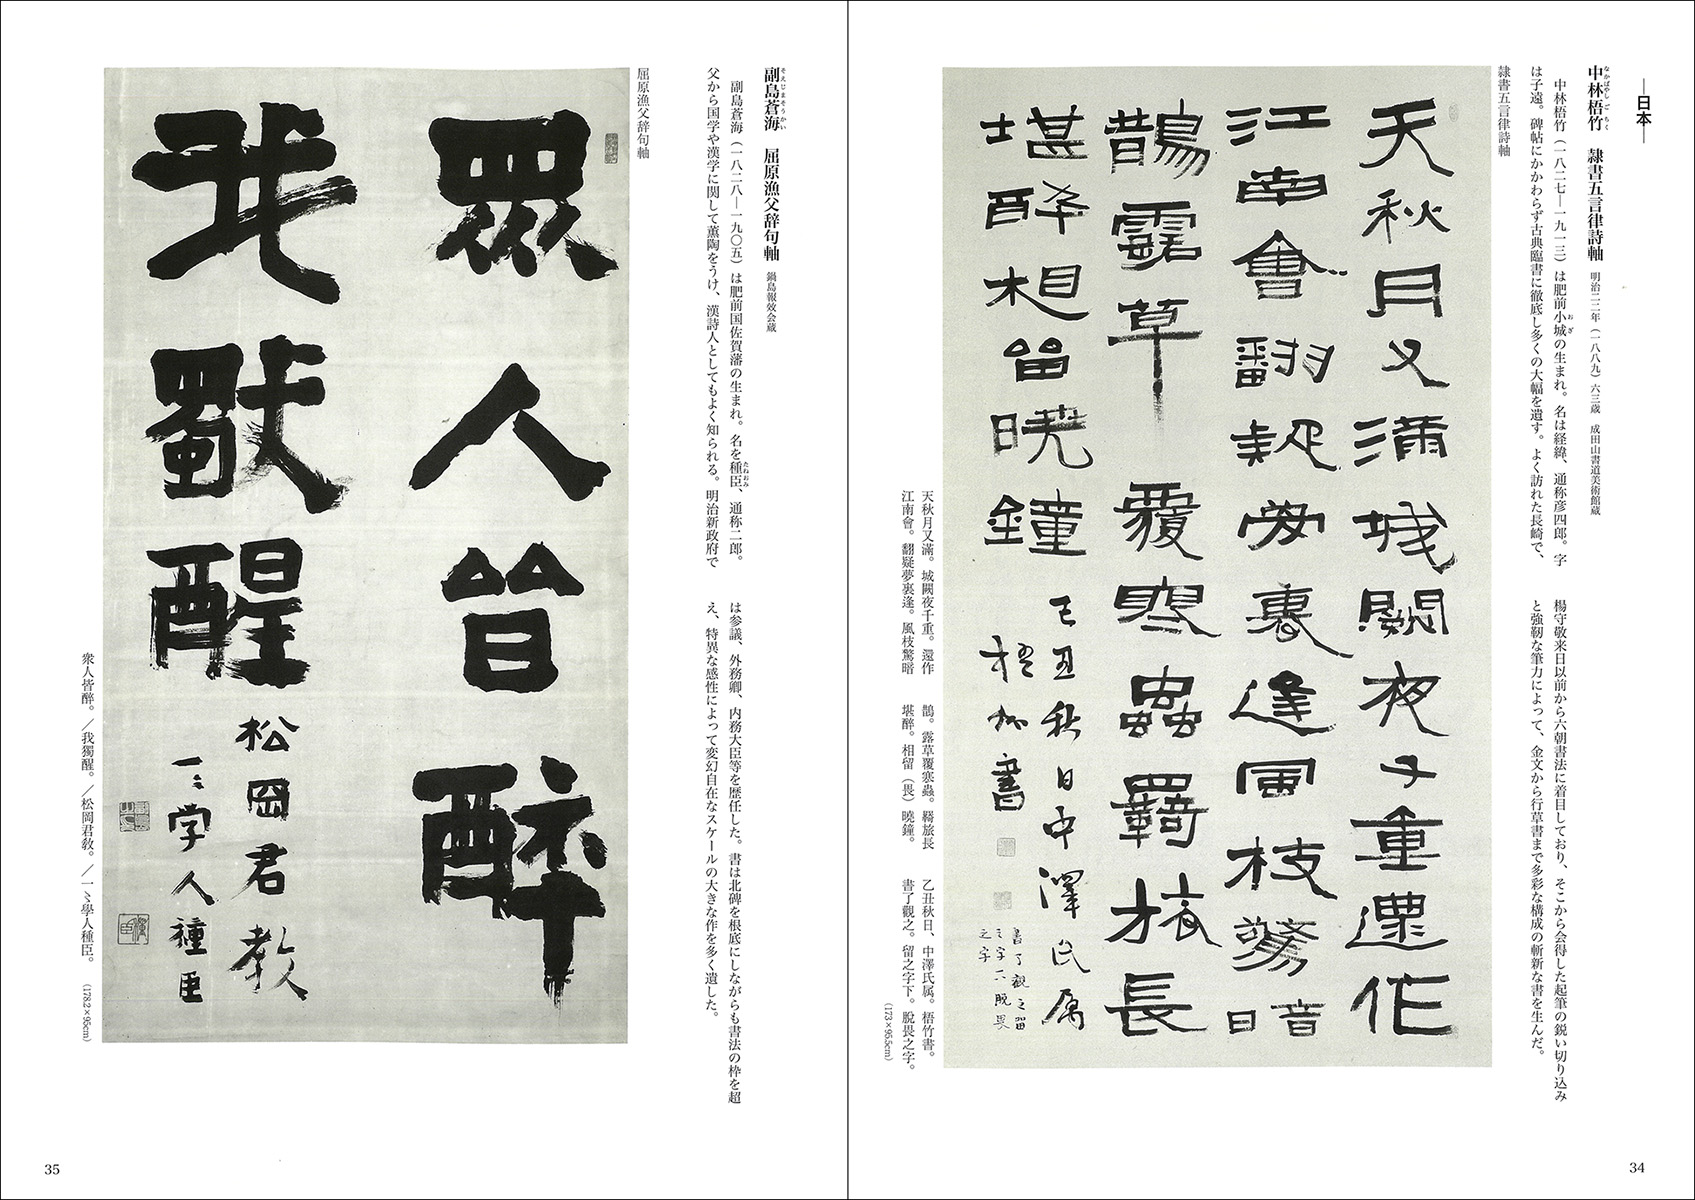 ―日本―
中林悟竹　隷書五言律詩軸　明治二二年（一八八九）六三歳　成田山書道美術館蔵
なかばやし ご ちく
中林梧竹（一八二七―一九一三）は肥前小城の生まれ。名は経緯、通称彦四郎。字
お ぎ
は子遠。碑帖にかかわらず古典臨書に徹底し多くの大幅を遺す。よく訪れた長崎で、
楊守敬来日以前から六朝書法に着目しており、そこから会得した起筆の鋭い切り込み
と強靭な筆力によって、金文から行草書まで多彩な構成の斬新な書を生んだ。
隷書五言律詩軸
天秋月又滿城闕夜千重還作
江南會翻疑夢裏逢風枝驚暗
鵲露草覆寒蟲羇旅長
堪酔相留曉鐘
乙丑秋日中澤氏属
梧竹書
書了觀之留
之字下脱畏
之字
天秋月又滿。城闕夜千重。還作
江南會。翻疑夢裏逢。風枝驚暗
鵲。露草覆寒蟲。羇旅長
堪醉。相留（畏）曉鐘。
乙丑秋日、中澤氏属。梧竹書。
書了觀之。留之字下。脱畏之字。
（173×95.5cm）
34
副島蒼海　屈原漁父辞句軸　鍋島報效会蔵
そえじまそうかい
副島蒼海（一八二八―一九〇五）は肥前国佐賀藩の生まれ。名を種臣、通称二郎。
たねおみ
父から国学や漢学に関して薫陶をうけ、漢詩人としてもよく知られる。明治新政府で
は参議、外務卿、内務大臣等を歴任した。書は北碑を根底にしながらも書法の枠を超
え、特異な感性によって変幻自在なスケールの大きな作を多く遺した。
屈原漁父辞句軸
眾人皆醉
我獨醒
松岡君教
一〻学人種臣
衆人皆醉。／我獨醒。／松岡君教。／一〻學人種臣。
（178.2×95cm）
35